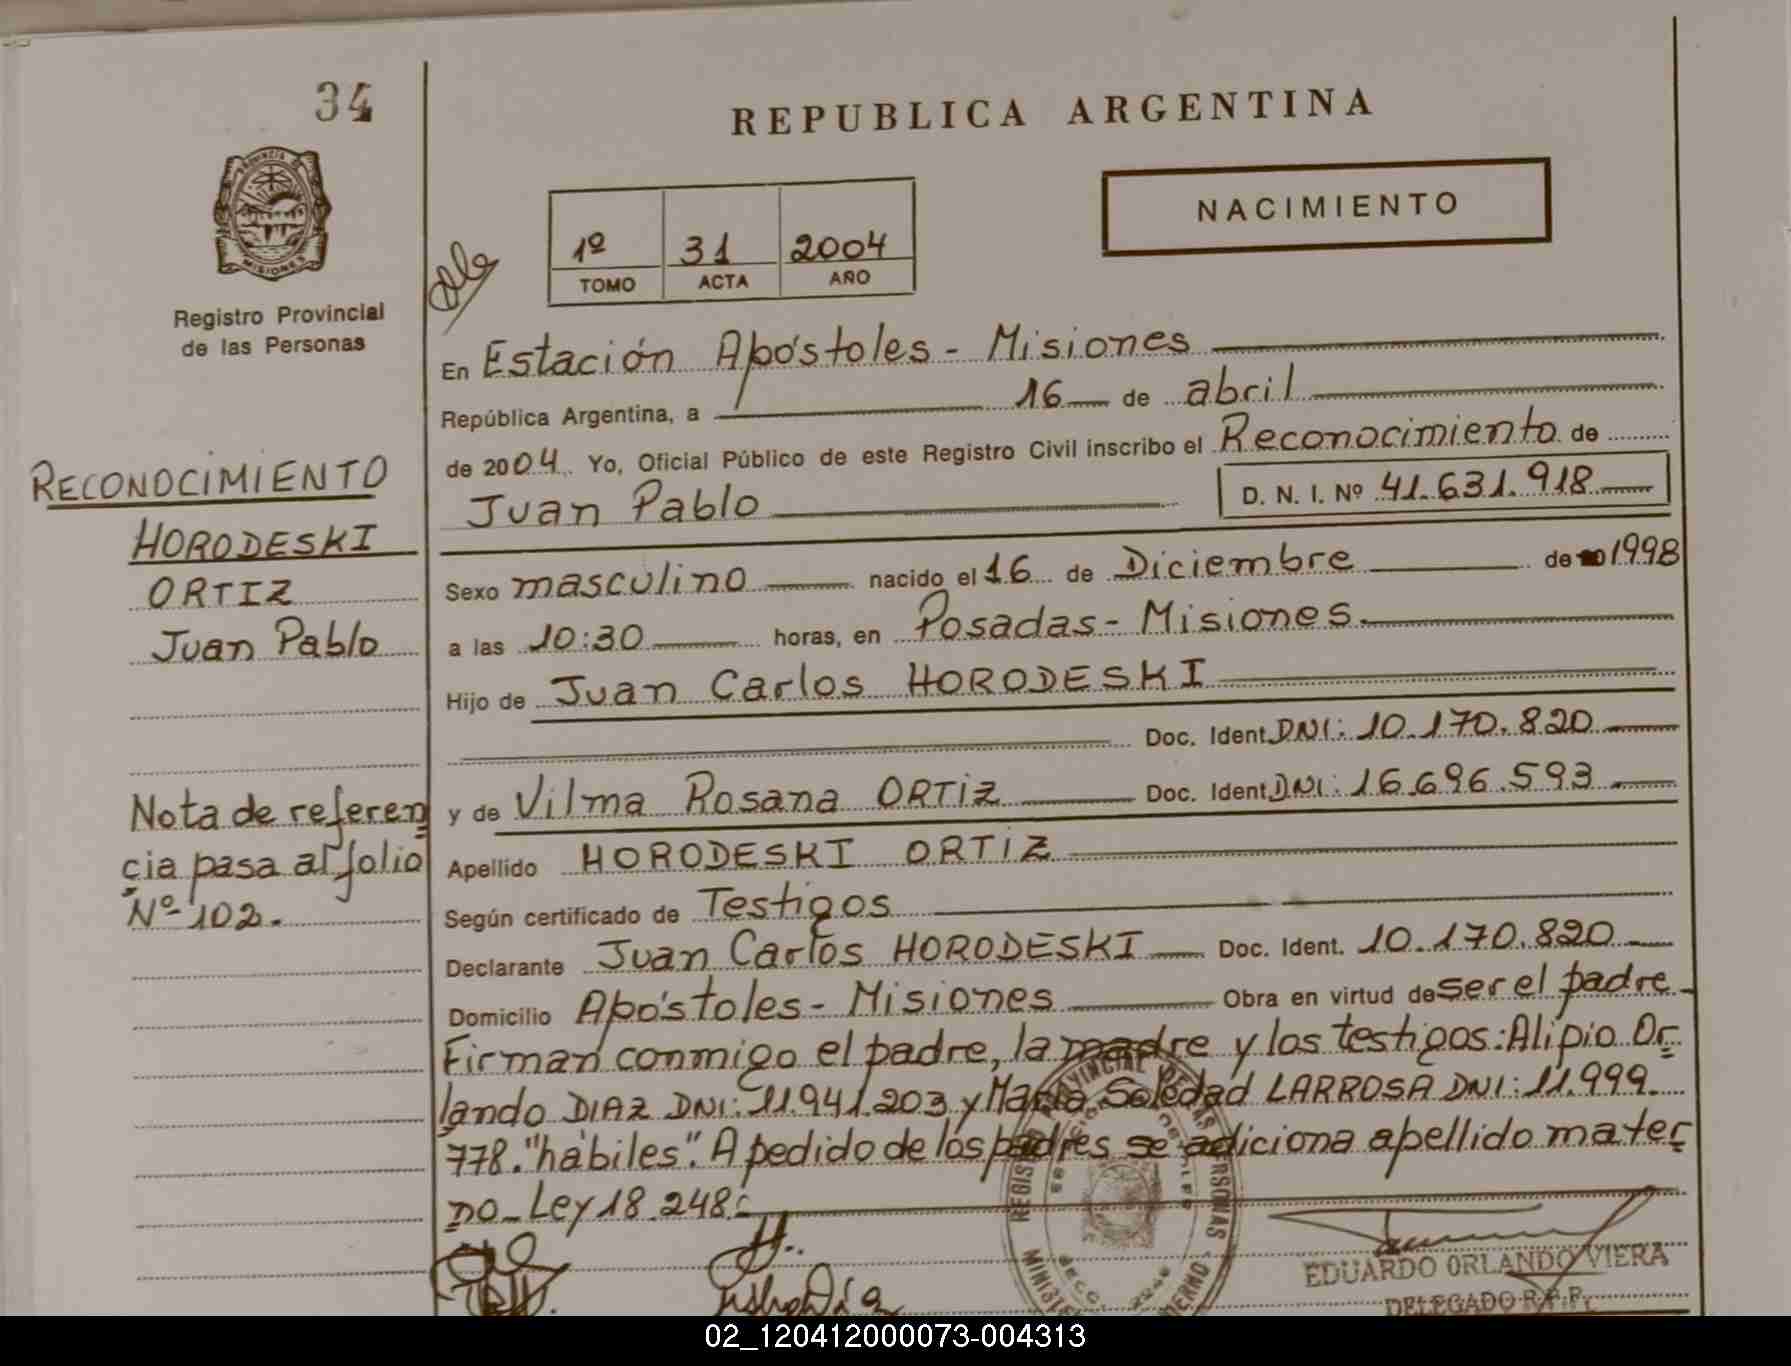 34
REPUBLICA ARGENTINA
NACIMIENTO
PROVINCIA DE
MISIONES
Registro Provincial
de las Personas
1º 31 2004
TOMO ACTA AÑO
En Estación Apóstoles - Misiones
República Argentina, a 16 de abril
de 2004. Yo, Oficial Público de este Registro Civil inscribo el Reconocimiento de
Juan Pablo D. N. I. Nº 41.631.918
RECONOCIMIENTO
HORODESKI
ORTIZ
Juan Pablo
Sexo masculino nacido el 16 de Diciembre de 1998
a las 10:30 horas, en Posadas - Misiones.
Hijo de Juan Carlos HORODESKI
Doc. Ident. DNI: 10.170.820
y de Vilma Rosana ORTIZ Doc. Ident. DNI: 16.696.593
Nota de referen
cia pasa al folio
Nº 102.
Apellido HORODESKI ORTIZ
Según certificado de Testigos
Declarante Juan Carlos HORODESKI Doc. Ident. 10.170.820
Domicilio Apóstoles - Misiones Obra en virtud de ser el padre
Firman conmigo el padre, la madre y los testigos: Alipio Or
lando DIAZ DNI: 11.941.203 y María Soledad LARROSA DNI: 11.999.
778. "hábiles". A pedido de los padres se adiciona apellido mater
no - Ley 18.248.-
EDUARDO ORLANDO VIERA
DELEGADO R.P.P.
02_120412000073-004313